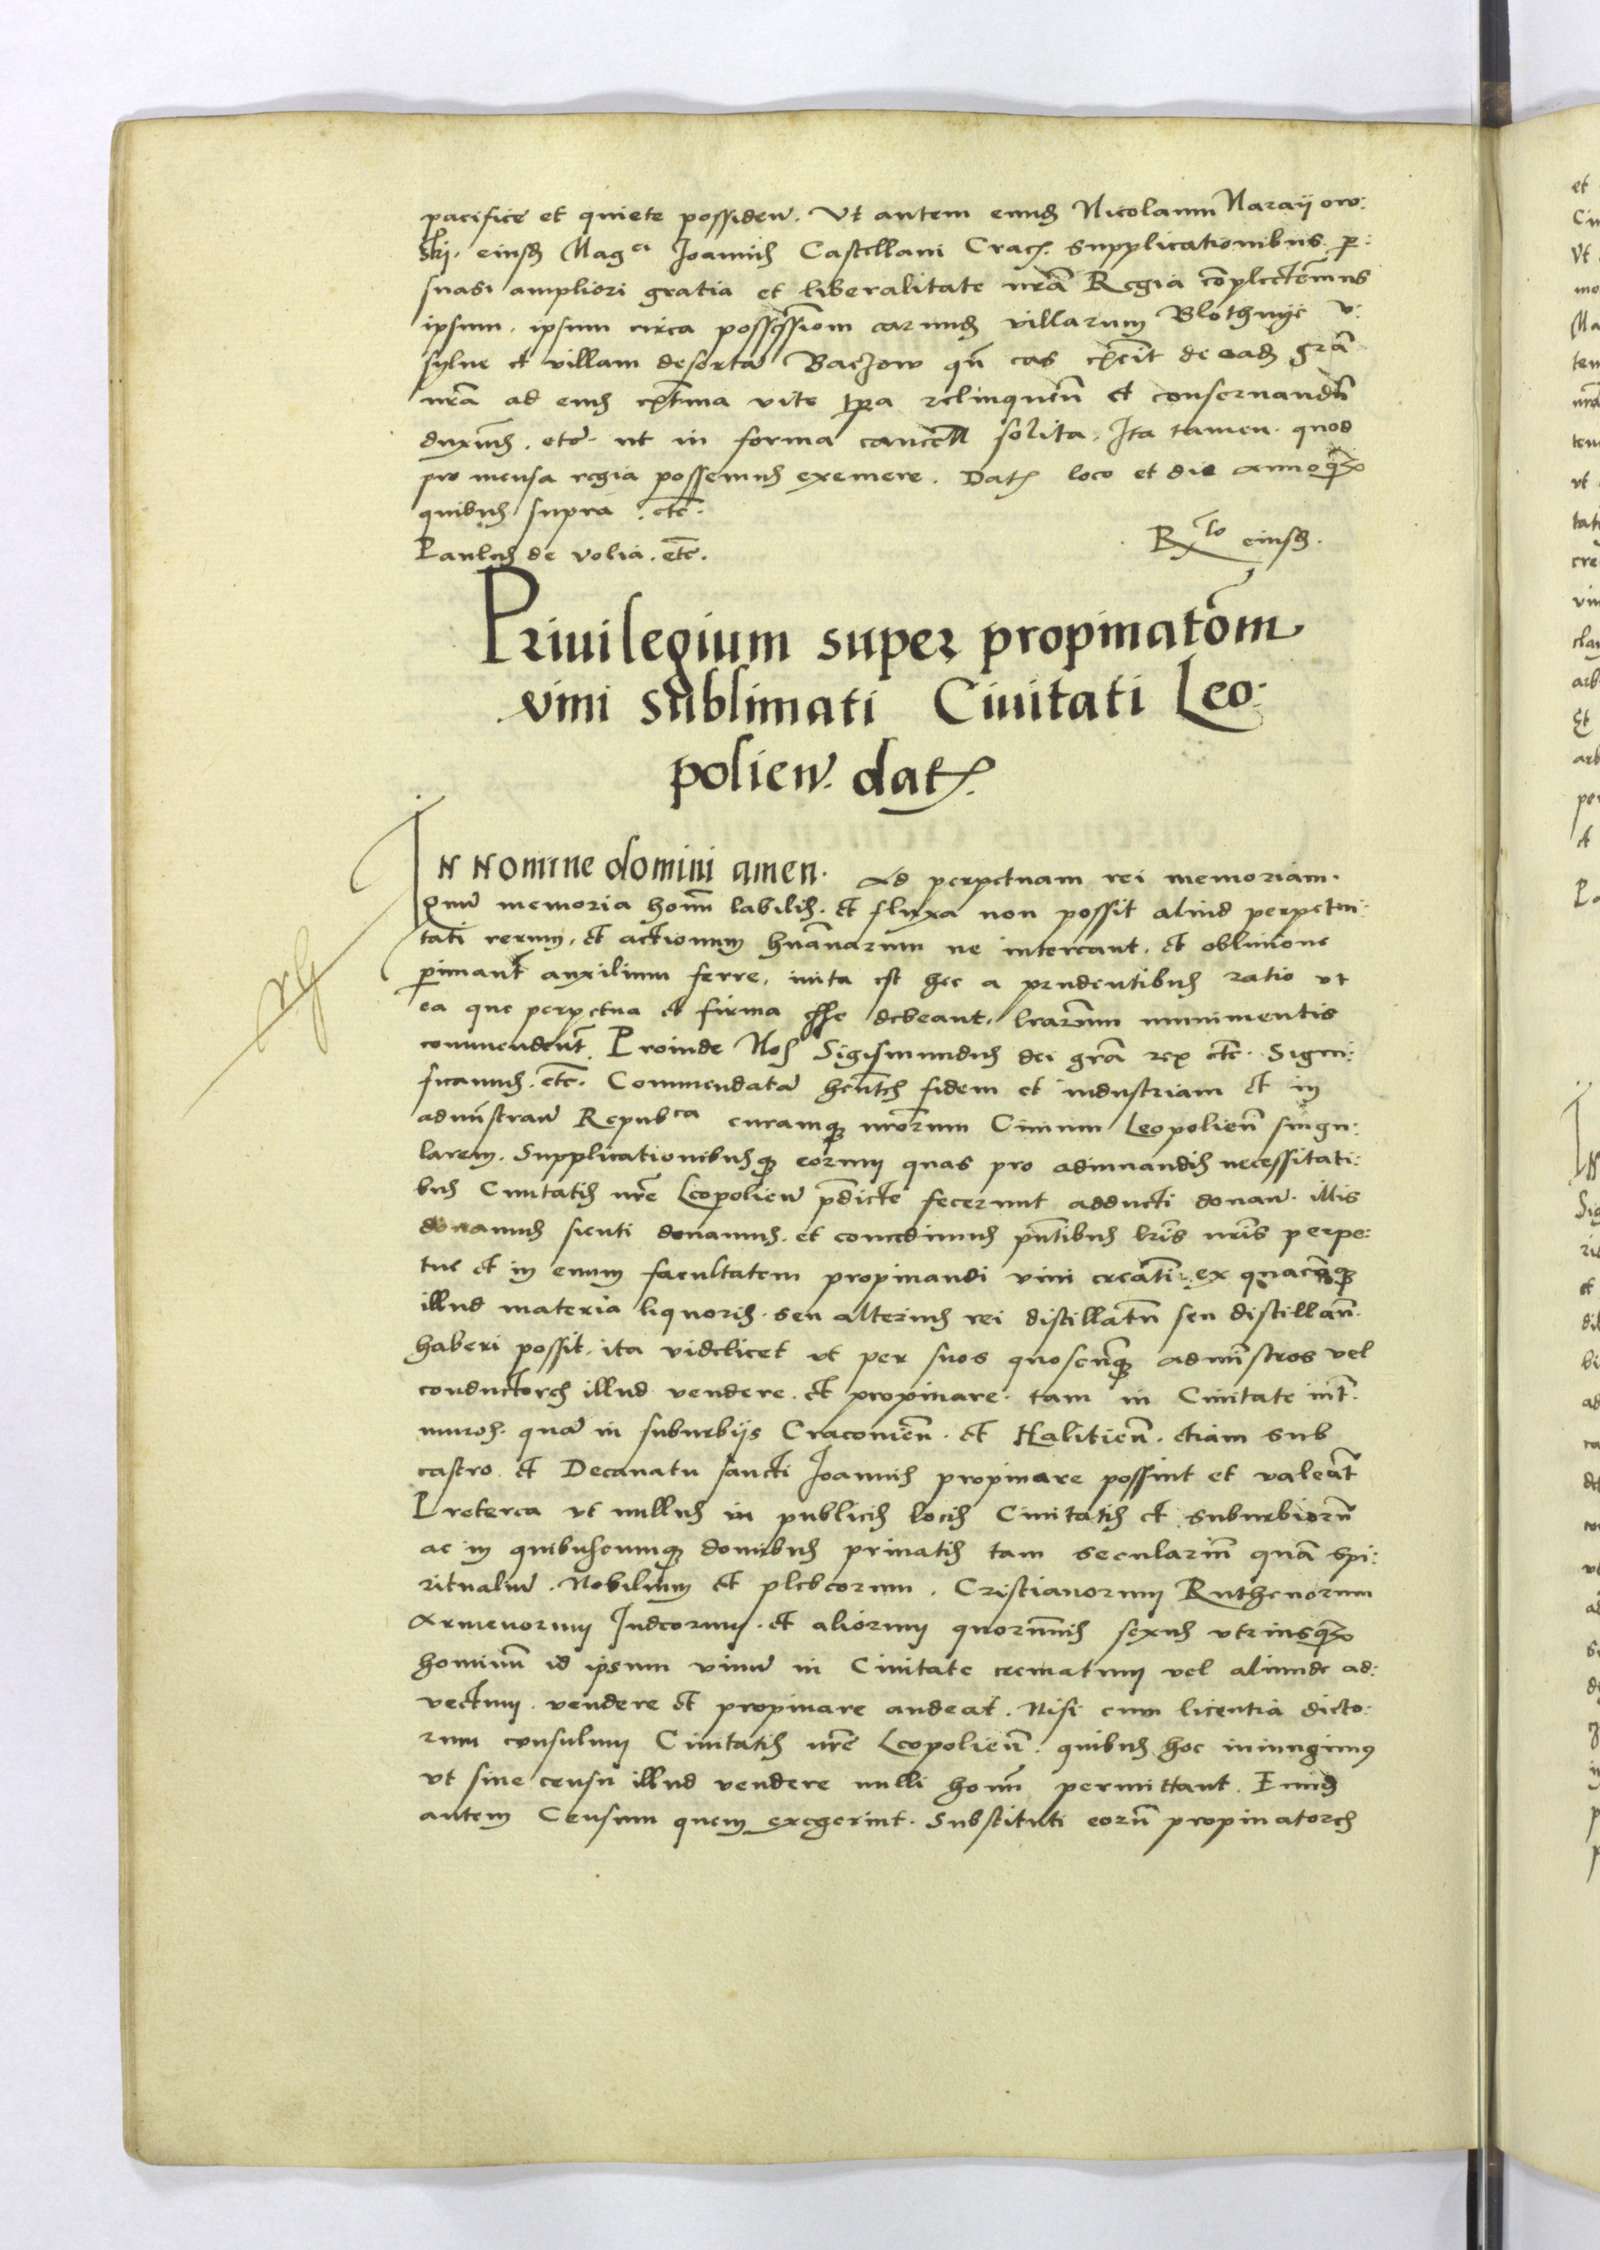 pacifice et quiete possiden̄. Vt autem eund̄ Nicolaum Naraijow:
ski. eiusd̄ Mag^ci Joannis Castellani Crac̄. supplicationibus p̱:
suasi ampliori gratia et liberalitate nrā Regia cōplectemus
ipsum. ipsum circa possessiom̄ earund̄ villarum Blothnye
sylue et villam desertā Baczow qn̄ eas de ead̄ grā
nrā ad eius extrema vite tp̄a relinquen̄ et conseruandn̄
duxim̄s. etc̄. ut in forma cancell solita. Ita tamen. quod
pro mensa regia possemus exemere. Dat̄ loco et die annoq̄
quibus supra. etc̄.
Paulus de Volia. etc̄.
R^to eiusd̄.
Priuilegium super propinatōm
vini sublimati Ciuitati Leo:
polien̄. dat̄.
In Nomine domini amen. Ad perpetuam rei memoriam.
Quū memoria hoīm labilis. et fluxa non possit aliud perpetui:
tati rerum, et actionum huānarum ne intereant. et obliuione
p̱imant̄ auxilium ferre, inita est hec a prudentibus ratio ut
ea que perpetua et firma esse debeant, lrarūm munimentis
commendent̄. Proinde Nos Sigismundus dei grā rex etc̄. Signi:
ficamus. etc̄. Commendatā hēntes fidem et industriam et in
admīstran̄ Repub^ca curamq̄ nrōrum Ciuium Leopolien̄ singu:
larem. Supplicationibusq̄ eorum quas pro adiuuandis necessitati:
bus Ciuitatis nrē Leopolien̄ p̄dicte fecerunt adducti donan̄. illis
donamus sicuti donamus. et concedimus p̄ntibus lrīs nrīs perpe:
tue et in euum facultatem propinandi vini creāti. ex quacunq̄
illud materia liquoris. seu alterius rei distillatn̄ seu distillan̄.
haberi possit. ita videlicet ut per suos quoscunq̄ admīstros vel
conductores illud vendere. et propinare. tam in Ciuitate int̄.
muros. quā in suburbijs Cracouien̄. et Halitien̄. etiam sub
castro. et Decanatu sancti Joannis propinare possint et valeāt
Preterea ut nullus in publicis locis Ciuitatis et suburbiorū
ac in quibuscumq̄ domibus priuatis tam seculariū quā spi:
ritualiū. Nobilium et plebeorum. Cristianorum Ruthenorum
Armenorum Judeorum. et aliorum quorumuis sexus vtriusq̄
hominū id ipsum vinū in Ciuitate crematum vel aliunde ad:
vectum. vendere et propinare audeat. Nisi cum licentia dicto:
rum consulum Ciuitatis nrē Leopolien̄. quibus hoc iniungimus
ut sine censu illud vendere nulli hoīm permittant. Eund̄
autem Censum quem exegerint. Substituti eorū propinatores